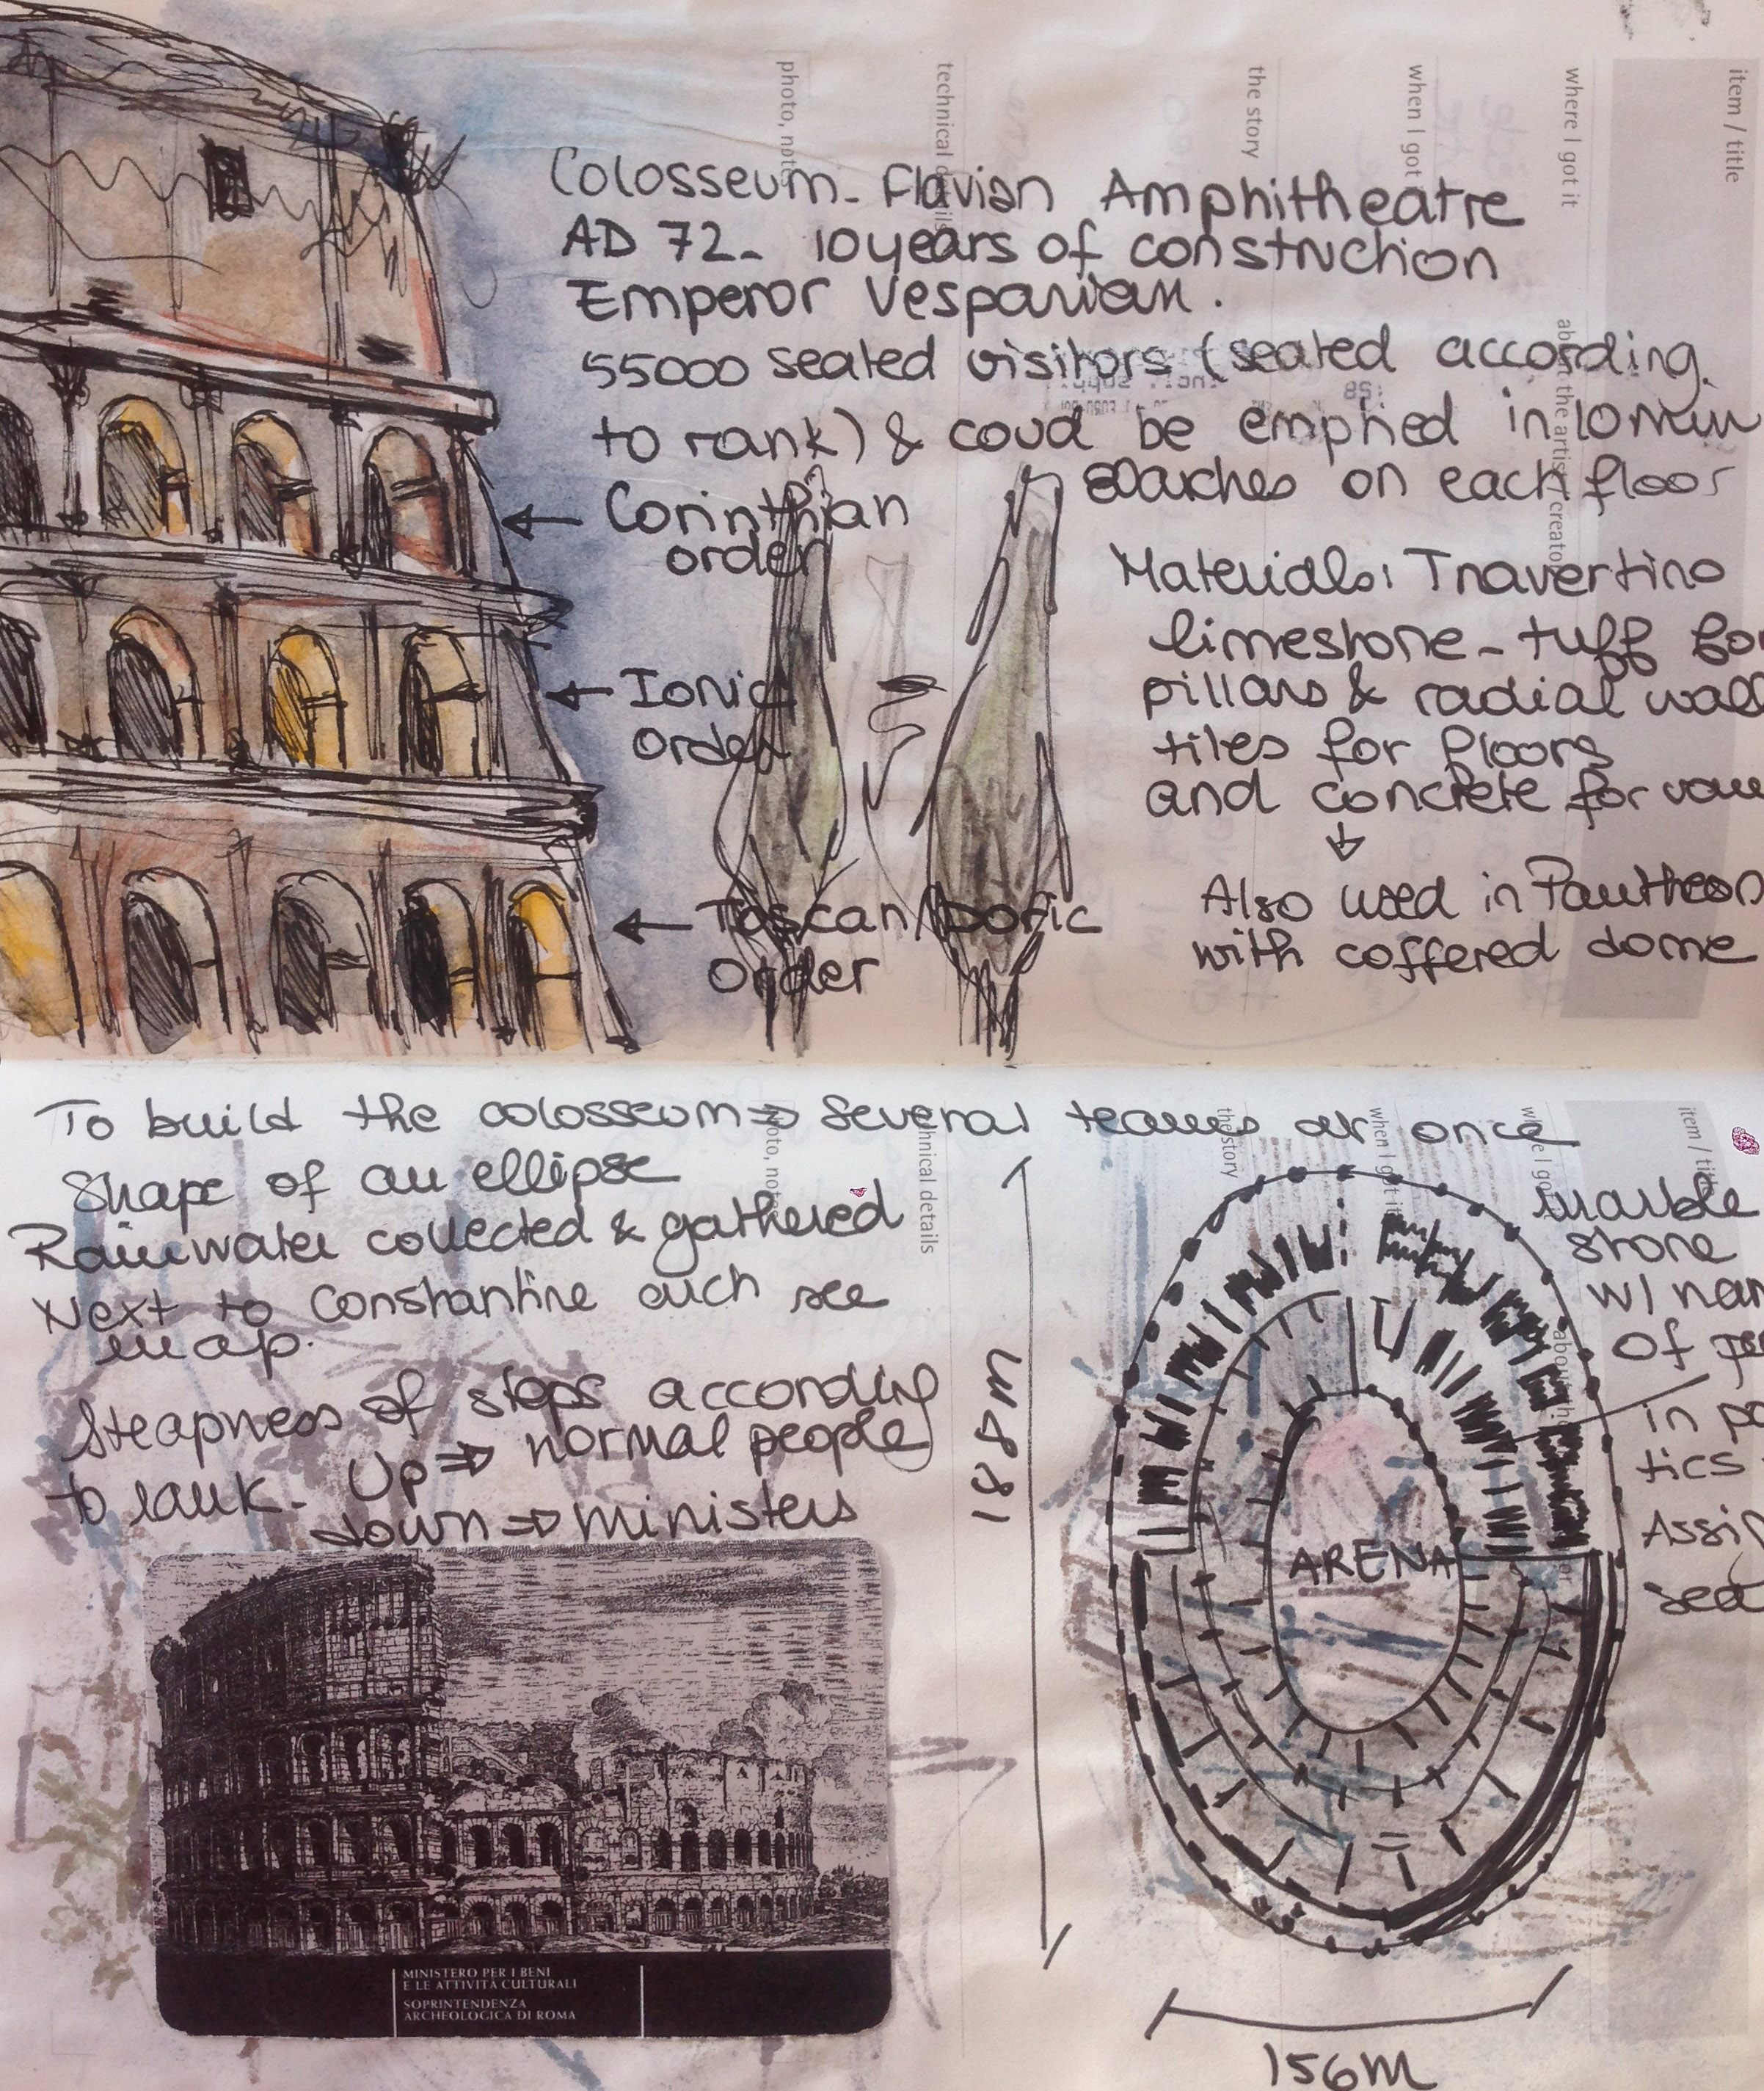 item / title
where I got it
when I got
the story
technical details
photo, note
about the artist / creator
Colosseum - Flavian Amphitheatre
AD 72 - 10 years of construction
Emperor Vespasian.
55000 seated visitors (seated according
to rank) & coud be emptied in 10 min
80 arches on each floor
Corinthian
order
Ionic
Order
Toscan/Doric
Order
Materials: Travertino
limestone - tuff for
pillars & radial wall
tiles for floors
and concrete for vau
Also used in Pantheon
with coffered dome
item / tit
where I go
when I got it
the story
technical details
photo, note
To build the colosseum ⇒ several teams at once
Shape of an ellipse
Rainwater collected & gathered
Next to Constantine arch see
map.
Steapness of steps according
to rank. Up ⇒ normal people
down ⇒ ministers
188 m
ARENA
156 m
marble
stone
w/ nam
of
in po
tics
Assig
sea
MINISTERO PER I BENI
E LE ATTIVITÀ CULTURALI
SOPRINTENDENZA
ARCHEOLOGICA DI ROMA